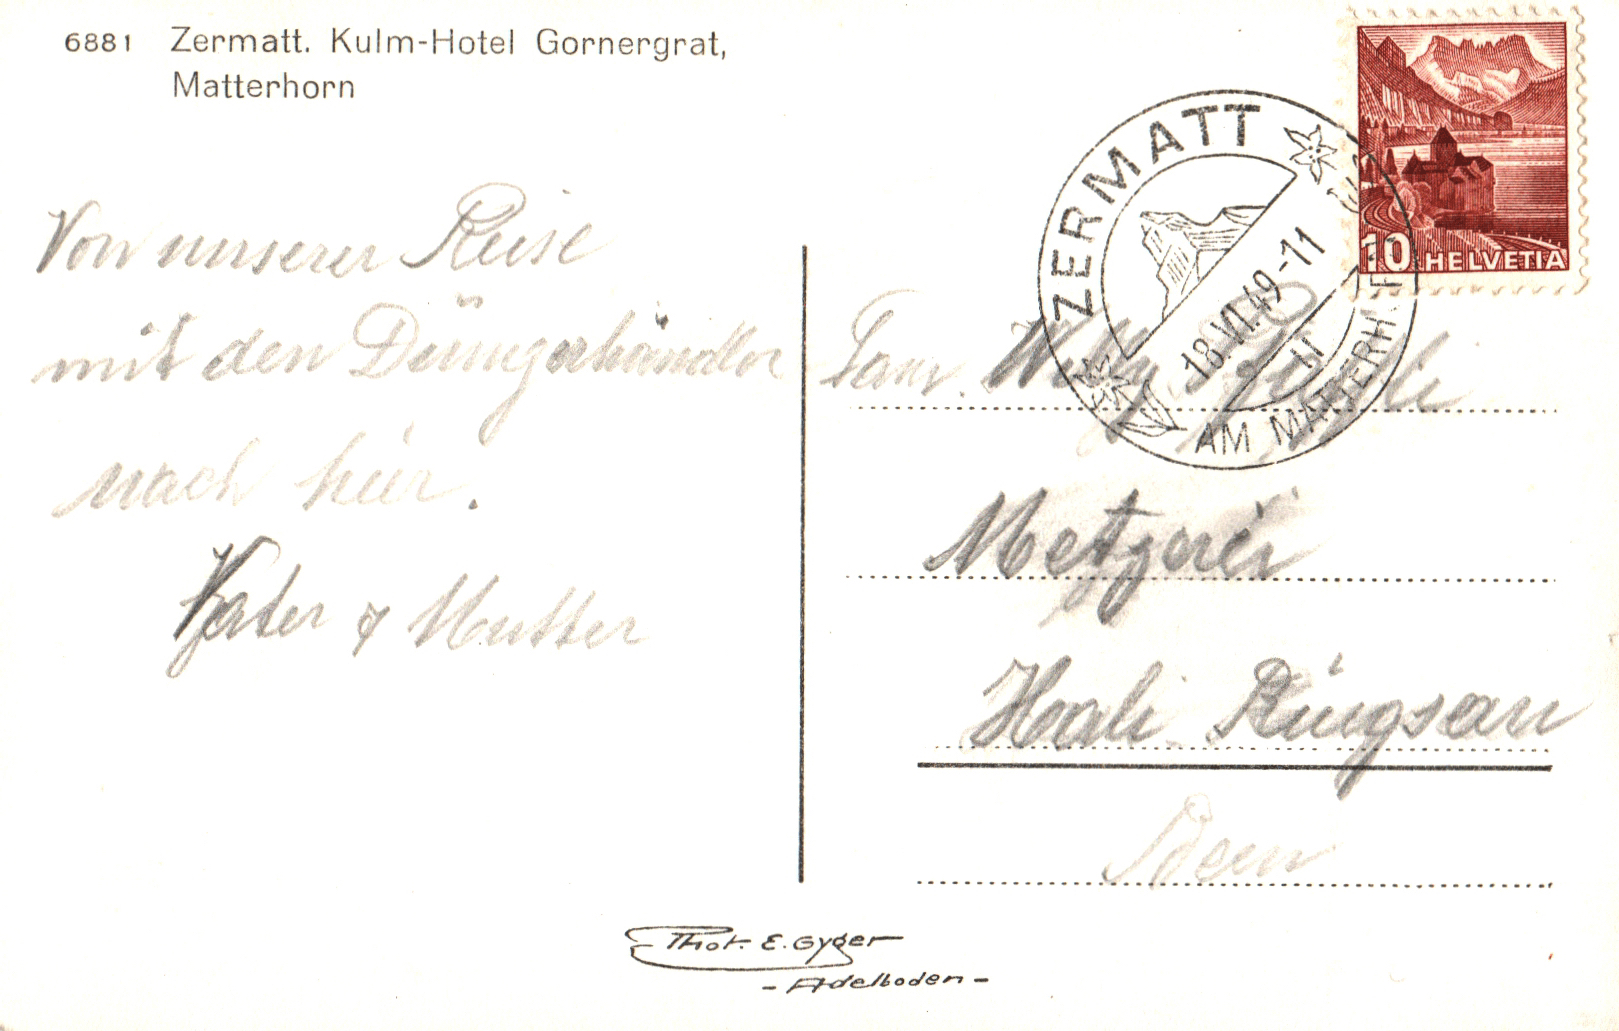 6881 Zermatt. Kulm-Hotel Gornergrat,
Matterhorn
Von unserer Reise
mit den Düngerhändler
nach hier.
Vater & Mutter
ZERMATT
18.VII.49-11
AM MATTERH
10 HELVETIA
Fam. Willy
Metzgerei
Rüegsau
Bern
Phot. E. Gyger
- Adelboden -